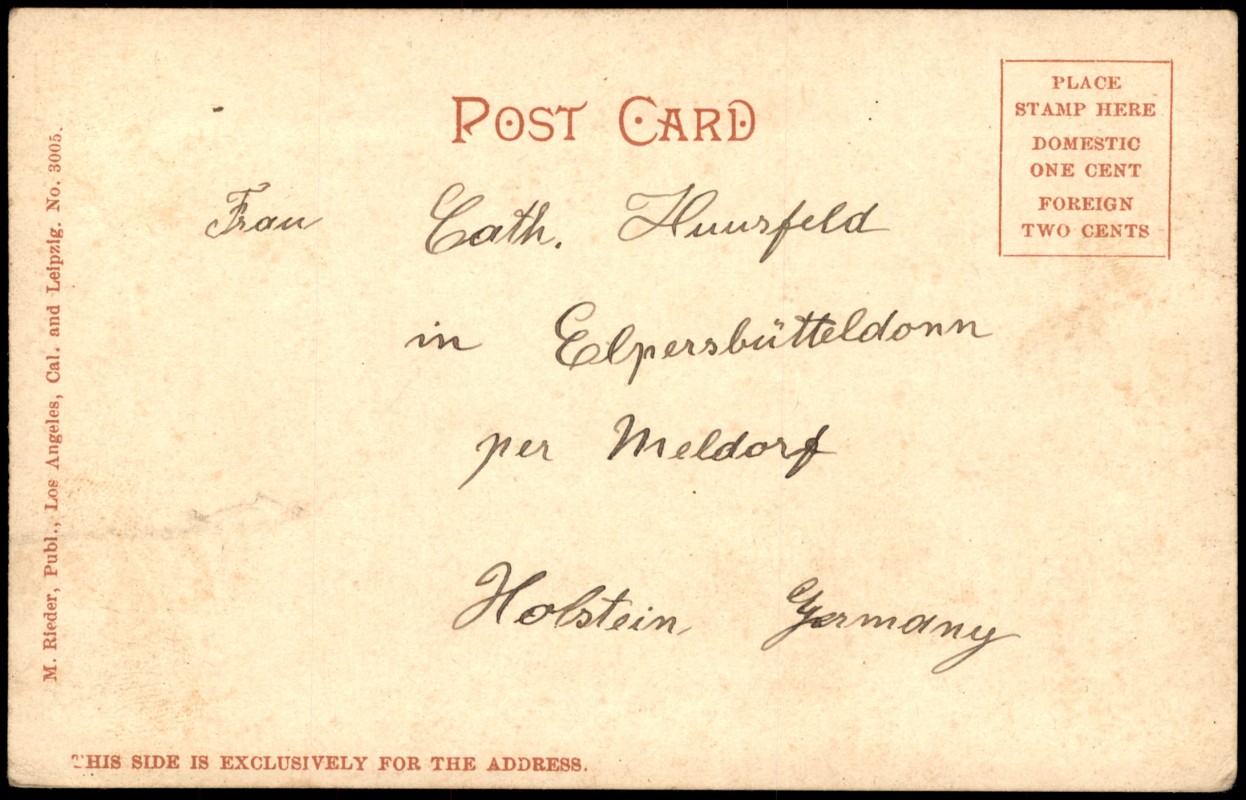 POST CARD
PLACE
STAMP HERE
DOMESTIC
ONE CENT
FOREIGN
TWO CENTS
Frau Cath. Huusfeld
in Elpersbütteldonn
per Meldorf
Holstein, Germany
M. Rieder, Publ., Los Angeles, Cal. and Leipzig. No. 3005.
THIS SIDE IS EXCLUSIVELY FOR THE ADDRESS.